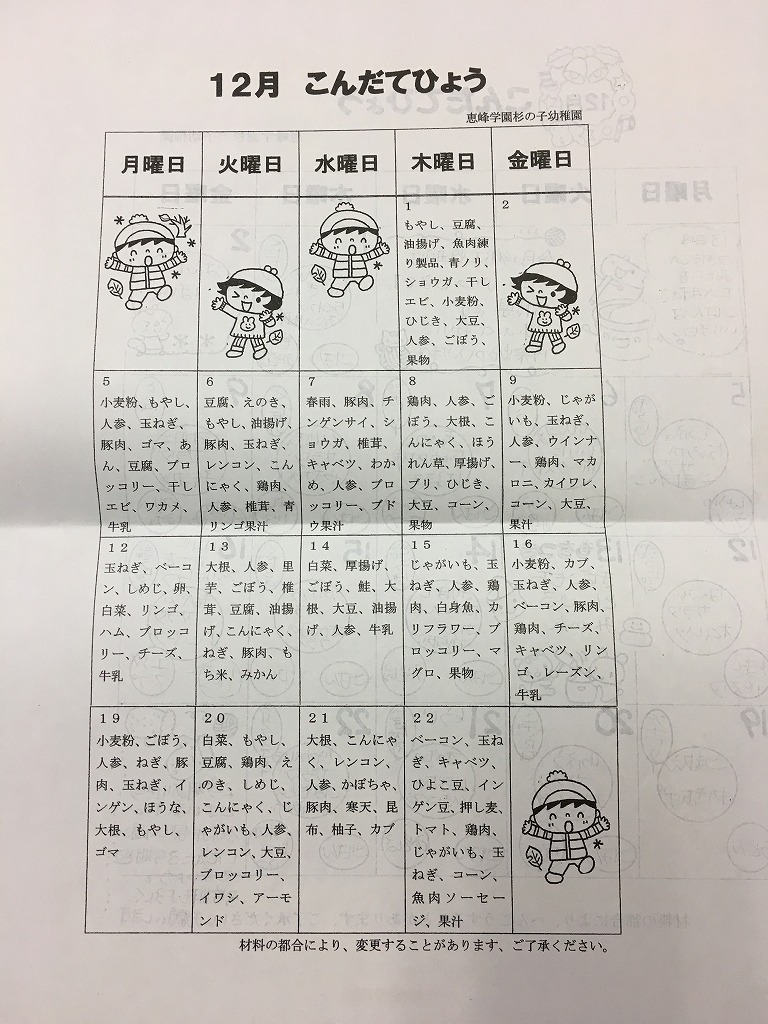 12月 こんだてひょう
恵峰学園杉の子幼稚園
月曜日 火曜日 水曜日 木曜日 金曜日
1
もやし、豆腐、
油揚げ、魚肉練
り製品、青ノリ、
ショウガ、干し
エビ、小麦粉、
ひじき、大豆、
人参、ごぼう、
果物
2
5
小麦粉、もやし、
人参、玉ねぎ、
豚肉、ゴマ、あ
ん、豆腐、ブロ
ッコリー、干し
エビ、ワカメ、
牛乳
6
豆腐、えのき、
もやし、油揚げ、
豚肉、玉ねぎ、
レンコン、こん
にゃく、鶏肉、
人参、椎茸、青
リンゴ果汁
7
春雨、豚肉、チ
ンゲンサイ、シ
ョウガ、椎茸、
キャベツ、わか
め、人参、ブロ
ッコリー、ブド
ウ果汁
8
鶏肉、人参、ご
ぼう、大根、こ
んにゃく、ほう
れん草、厚揚げ、
ブリ、ひじき、
大豆、コーン、
果物
9
小麦粉、じゃが
いも、玉ねぎ、
人参、ウインナ
ー、鶏肉、マカ
ロニ、カイワレ、
コーン、大豆、
果汁
12
玉ねぎ、ベーコ
ン、しめじ、卵、
白菜、リンゴ、
ハム、ブロッコ
リー、チーズ、
牛乳
13
大根、人参、里
芋、ごぼう、椎
茸、豆腐、油揚
げ、こんにゃく、
ねぎ、豚肉、も
ち米、みかん
14
白菜、厚揚げ、
ごぼう、鮭、大
根、大豆、油揚
げ、人参、牛乳
15
じゃがいも、玉
ねぎ、人参、鶏
肉、白身魚、カ
リフラワー、ブ
ロッコリー、マ
グロ、果物
16
小麦粉、カブ、
玉ねぎ、人参、
ベーコン、豚肉、
鶏肉、チーズ、
キャベツ、リン
ゴ、レーズン、
牛乳
19
小麦粉、ごぼう、
人参、ねぎ、豚
肉、玉ねぎ、イ
ンゲン、ほうな、
大根、もやし、
ゴマ
20
白菜、もやし、
豆腐、鶏肉、え
のき、しめじ、
こんにゃく、じ
ゃがいも、人参、
レンコン、大豆、
ブロッコリー、
イワシ、アーモ
ンド
21
大根、こんにゃ
く、レンコン、
人参、かぼちゃ、
豚肉、寒天、昆
布、柚子、カブ
22
ベーコン、玉ね
ぎ、キャベツ、
ひよこ豆、イン
ゲン豆、押し麦、
トマト、鶏肉、
じゃがいも、玉
ねぎ、コーン、
魚肉ソーセー
ジ、果汁
材料の都合により、変更することがあります、ご了承ください。